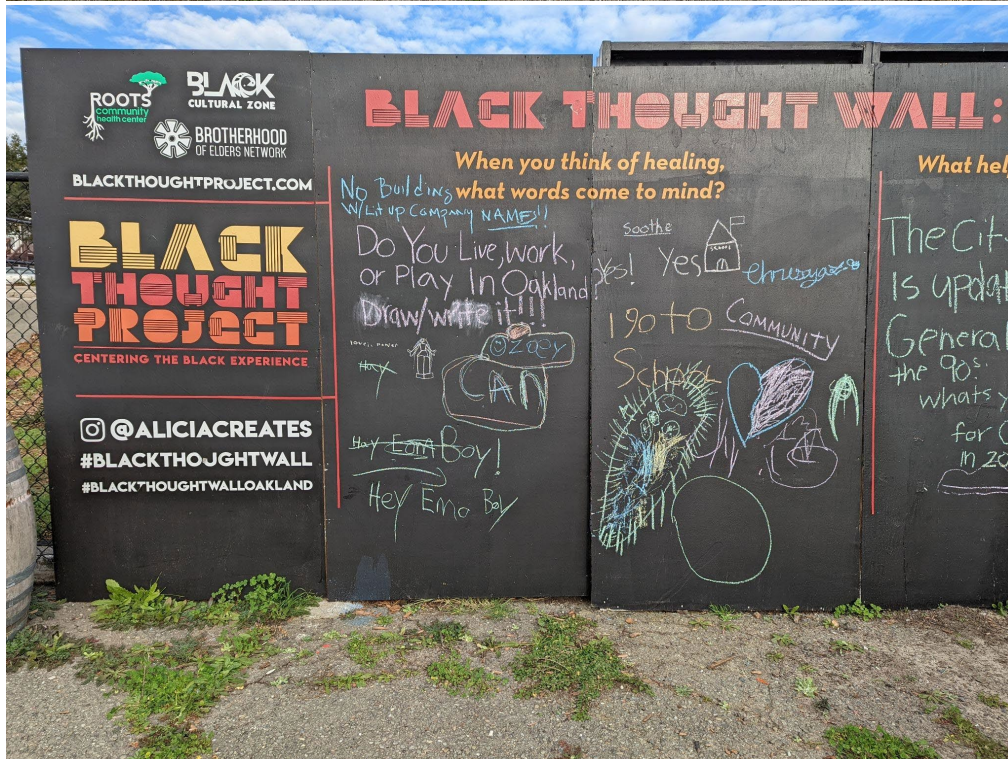 ROOTS
community
health center
BLACK
CULTURAL ZONE
BROTHERHOOD
OF ELDERS NETWORK
BLACKTHOUGHTPROJECT.COM
BLACK
THOUGHT
PROJECT
CENTERING THE BLACK EXPERIENCE
@ALICIACREATES
#BLACKTHOUGHTWALL
#BLACKTHOUGHTWALLOAKLAND
BLACK THOUGHT WALL:
When you think of healing,
what words come to mind?
No Building
W/Lit up Company NAMES!!
Do You Live, work,
or Play In Oakland
Draw/write it!!!
Ozoey
CAN
Hay
Hay Boy!
Hey Emo Boy
soothe
Yes!
Yes
I go to
School
COMMUNITY
What hel
The Cit
Is updat
General
the 90s.
whats y
for
in 20